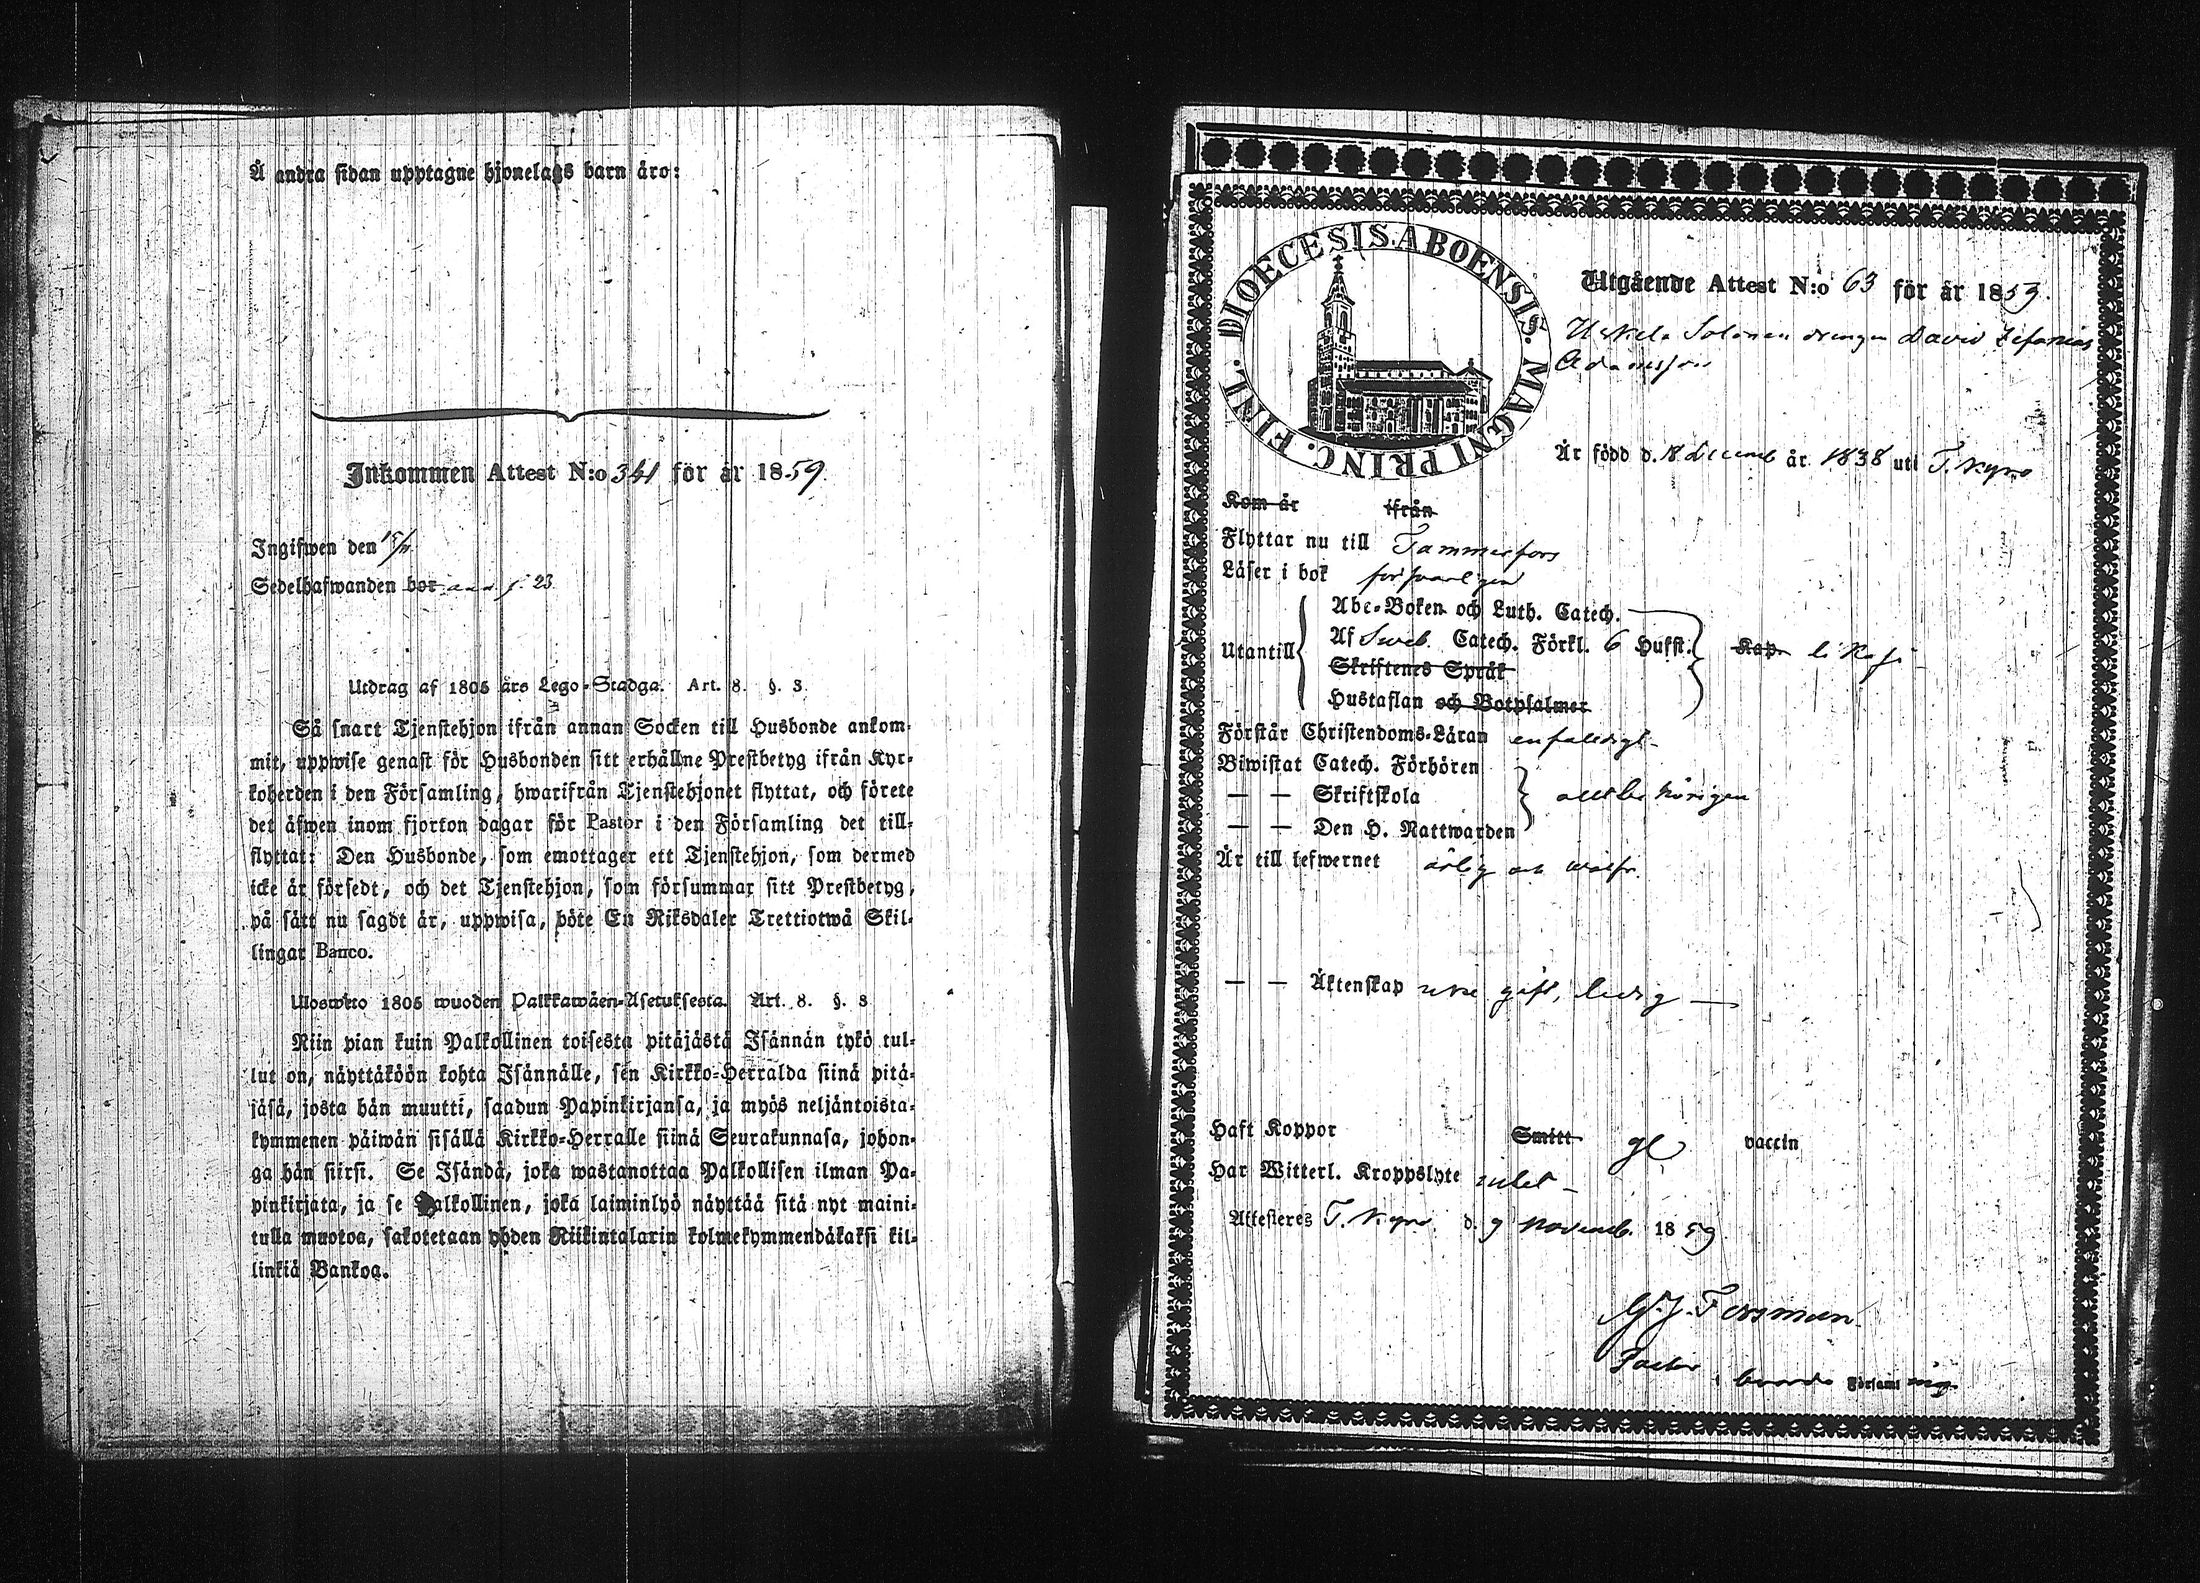 Å andra sidan upptagne hjonelags barn äro:
Inkommen Attest N:o 341 för år 1859.
Ingifwen den 15/11
Sedelhafwanden bor 23
Utdrag af 1805 års Lego-Stadga. Art. 8. §. 3.
Så snart Tjenstehjon ifrån annan Socken till Husbonde ankom-
mit, uppwise genast för Husbonden sitt erhållne Prestbetyg ifrån Kyr-
koherden i den Församling, hwarifrån Tjenstehjonet flyttat, och förete
det äfwen inom fjorton dagar för Pastor i den Församling det till-
flyttat: Den Husbonde, som emottager ett Tjenstehjon, som dermed
icke är försedt, och det Tjenstehjon, som försummar sitt Prestbetyg,
på sätt nu sagdt är, uppwisa, böte En Riksdaler Trettiotwå Skil-
lingar Banco.
Uloswéto 1805 wuoden Palkkawäen-Asetuksesta. Art. 8. §. 3
Niin pian kuin Palkollinen toisesta pitäjästä Isännän tykö tul-
lut on, näyttäköön kohta Isännälle, sen Kirkko-Herralda siinä pitä-
jäsä, josta hän muutti, saadun Papinkirjansa, ja myös neljäntoista-
kymmenen päiwän sisällä Kirkko-Herralle siinä Seurakunnasa, johon-
ga hän siirsi. Se Isändä, joka wastanottaa Palkollisen ilman Pa-
pinkirjata, ja se Palkollinen, joka laiminlyö näyttää sitä nyt maini-
tulla muotoa, sakotetaan yhden Riikintalarin kolmekymmendäkaksi kil-
linkiä Bankoa.
DIOECESIS. ABOENSIS. MAGNI PRINC. FINL.
Utgående Attest N:o 63 för år 1859.
drengen David Zefanias
Adamsson
Är född d. 18 decemb år 1838 uti T. Kyro
Kom år ifrån
Flyttar nu till Tammerfors
Läser i bok försvarligen
Utantill
Abc-Boken och Luth. Catech.
Af Sweb. Catech. Förkl. 6 Hufst.
Kap.
Skriftenes Språk
Hustaflan och Botpsalmer
Förstår Christendoms-Läran enfaldigt
Biwistat Catech. Förhören
— — Skriftskola
— — Den H. Nattwarden
behörigen
Är till lefwernet ärlig och wälfr.
— — Äktenskap icke gift, ledig —
Haft Koppor Smitt vaccin
Har Witterl. Kroppslyte intet —
Attesteres T. Kyro d. 9 novemb. 1859
G. J. Forsman
Pastor i Församling